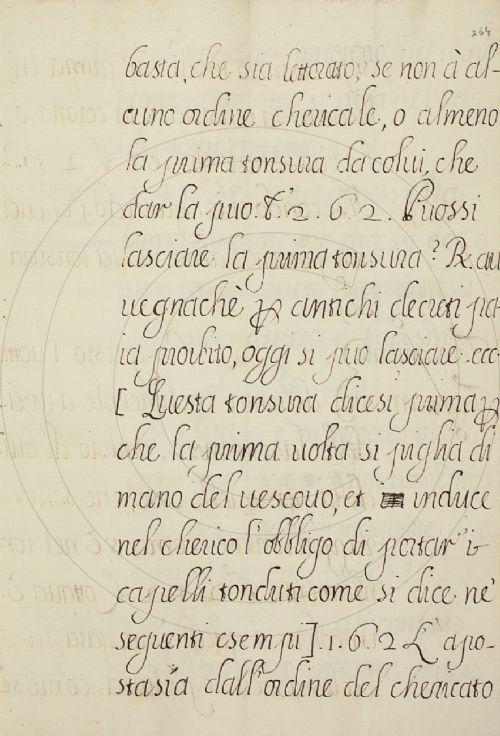 264
basta, che sia letterato, se non à al-
cuno ordine chericale, o almeno
la prima tonsura da colui, che
dar la puo. 2. 6. 2. Puossi
lasciare la prima tonsura? R. au
uegnachè ꝑ antichi decreti pa-
ia proibito, oggi si può lasciare. ecc.
[ Questa tonsura dicesi prima ꝑ
che la prima uolta si piglia di
mano del uescouo, et induce
nel cherico l'obbligo di portar' i
capelli tonduti come si dice ne'
seguenti esempij]. 1. 6. 2 L' apo-
stasia dall'ordine del chericato